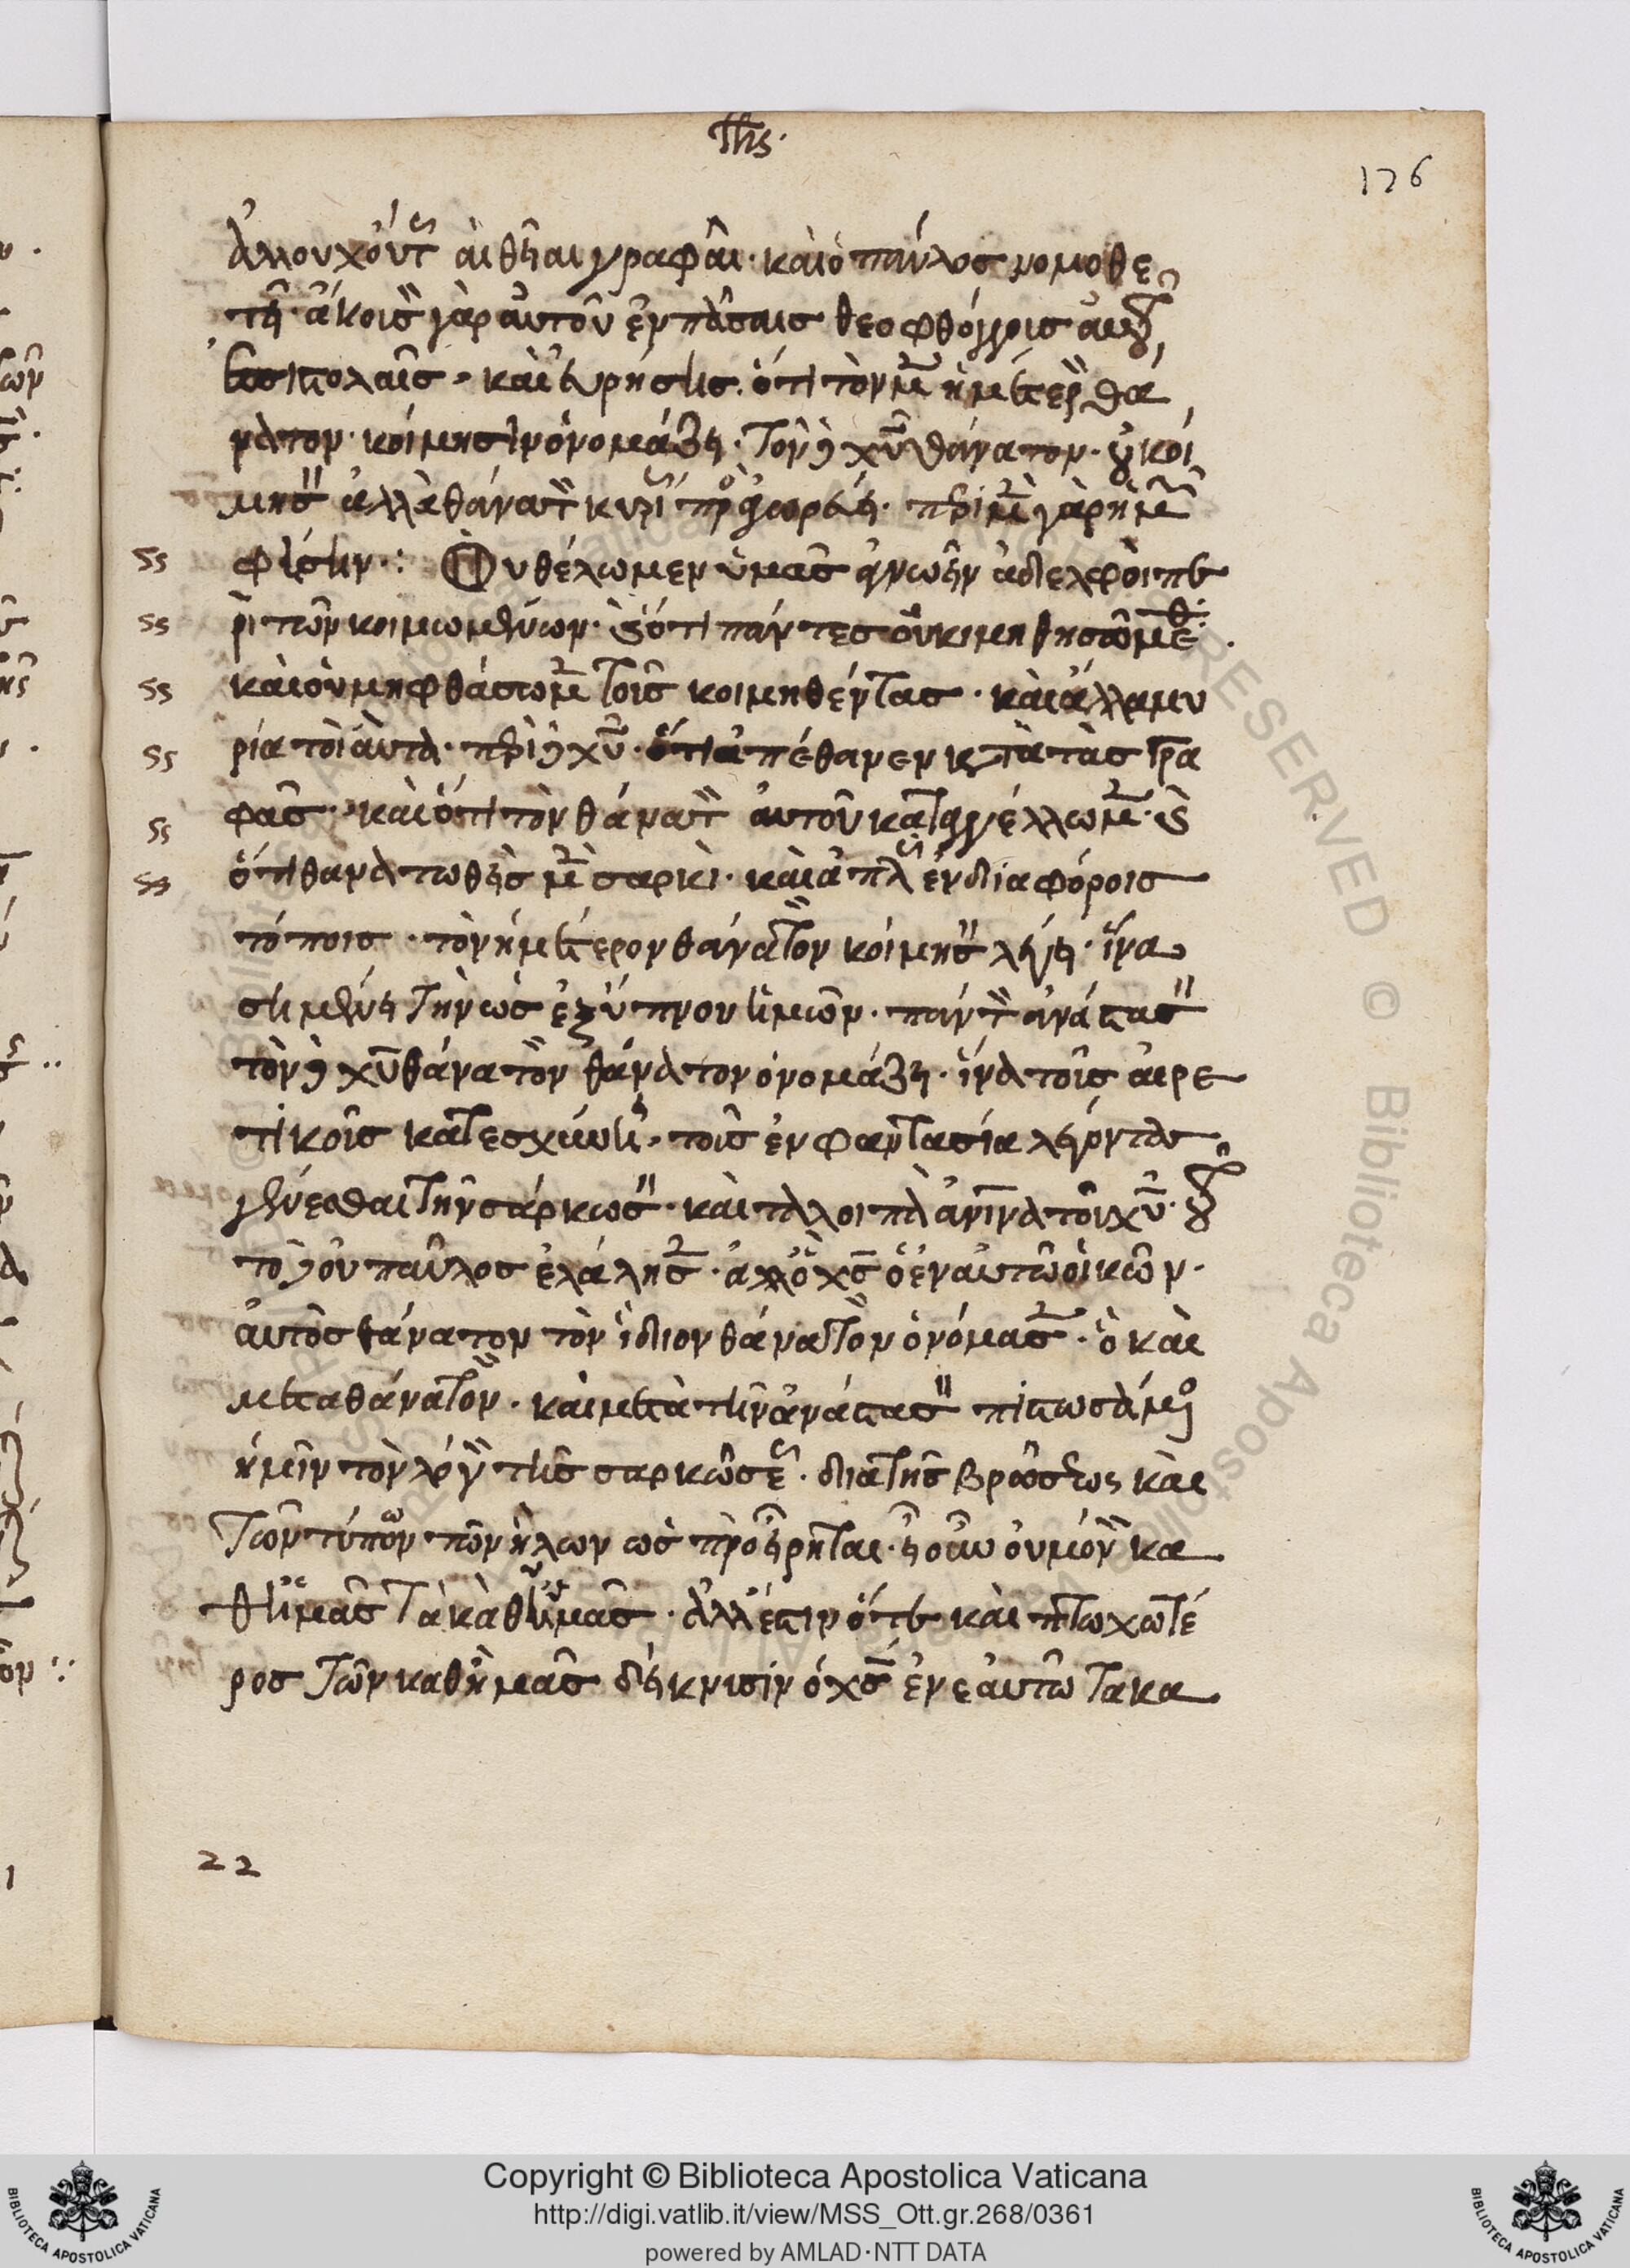 Ihs.
126
ἀλλ' οὐχ οὕτως αἱ θεῖαι γραφαὶ. καὶ ὁ παῦλος νομοθε
τεῖ. ἄκοισον γὰρ αὐτοῦ ἐν πάσαις θεοφθόγγοις αὐτοῦ
ἐπιστολαῖς. καὶ εὑρήσεις. ὅτι τὸν μὲν ἡμέτερον θά
νατον. κοίμησιν ὀνομάζει. τὸν δὲ χυ θάνατον. οὐ κοί
μησιν ἀλλὰ θάνατον κυρίως προσαγορεύει. περὶ μὲν γὰρ ἡμῶν
φησὶν: Οὐ θέλωμεν ὑμᾶς ἀγνωεῖν ἀδελφοὶ πε
ρὶ τῶν κοιμωμένων. καὶ ὅτι πάντες οὐ κιμηθησώμεθα.
καὶ οὐ μὴ φθάσωμεν τοὺς κοιμηθέντας. καὶ ἄλλα μυ
ρία τοιαῦτα. περὶ δὲ χυ. ὅτι ἀπέθανεν κατὰ τὰς γρα
φάς. καὶ ὅτι τὸν θάνατον αὐτοῦ καταγγέλλωμεν. καὶ
ὅτι θανατωθεὶς μὲν σαρκὶ. καὶ ἁπλῶς ἐν διαφόροις
τόποις. τὸν ἡμέτερον θάνατον κοίμησιν λέγει. ἵνα
σημένει τὴν ὡς ἐξ ὕπνου ἡμῶν. πάντων ἀνάστασιν
τὸν δὲ χυ θάνατον θάνατον ὀνομάζει. ἵνα τοῖς αἱρε
τικοῖς κατεσχύνει. τοῖς ἐν φαντασία λέγοντας
γενέσθαι τὴν σάρκωσιν. καὶ τὰ λοιπὰ ἀνινα τοῦ χυ.
τὸ δὲ οὐ παῦλος ἐλάλησεν. ἀλλ' ὁ χς ὁ ἐν αὐτῶ οἰκῶν.
αὐτὸς θάνατον τὸν ἴδιον θάνατον ὀνόμασεν. ὁ καὶ
μετὰ θάνατον. καὶ μετὰ τὴν ἀνάστασιν πιστωσάμενος
ἡμῖν τὸν λόγον τῆς σαρκώσεως. διὰ τῆς βρώσεως καὶ
τῶν τύπων τῶν ἥλων ὡς προείρηται.
θ' ἡμᾶς τὰ καθ' ἡμᾶς. ἀλλ' ἔστιν ὅτε καὶ πτωχωτέ
ρος τῶν καθ' ἡμᾶς δείκνισιν ὁ χς ἐν ἑαυτῶ τὰ κα
22
Copyright © Biblioteca Apostolica Vaticana
http://digi.vatlib.it/view/MSS_Ott.gr.268/0361
powered by AMLAD·NTT DATA